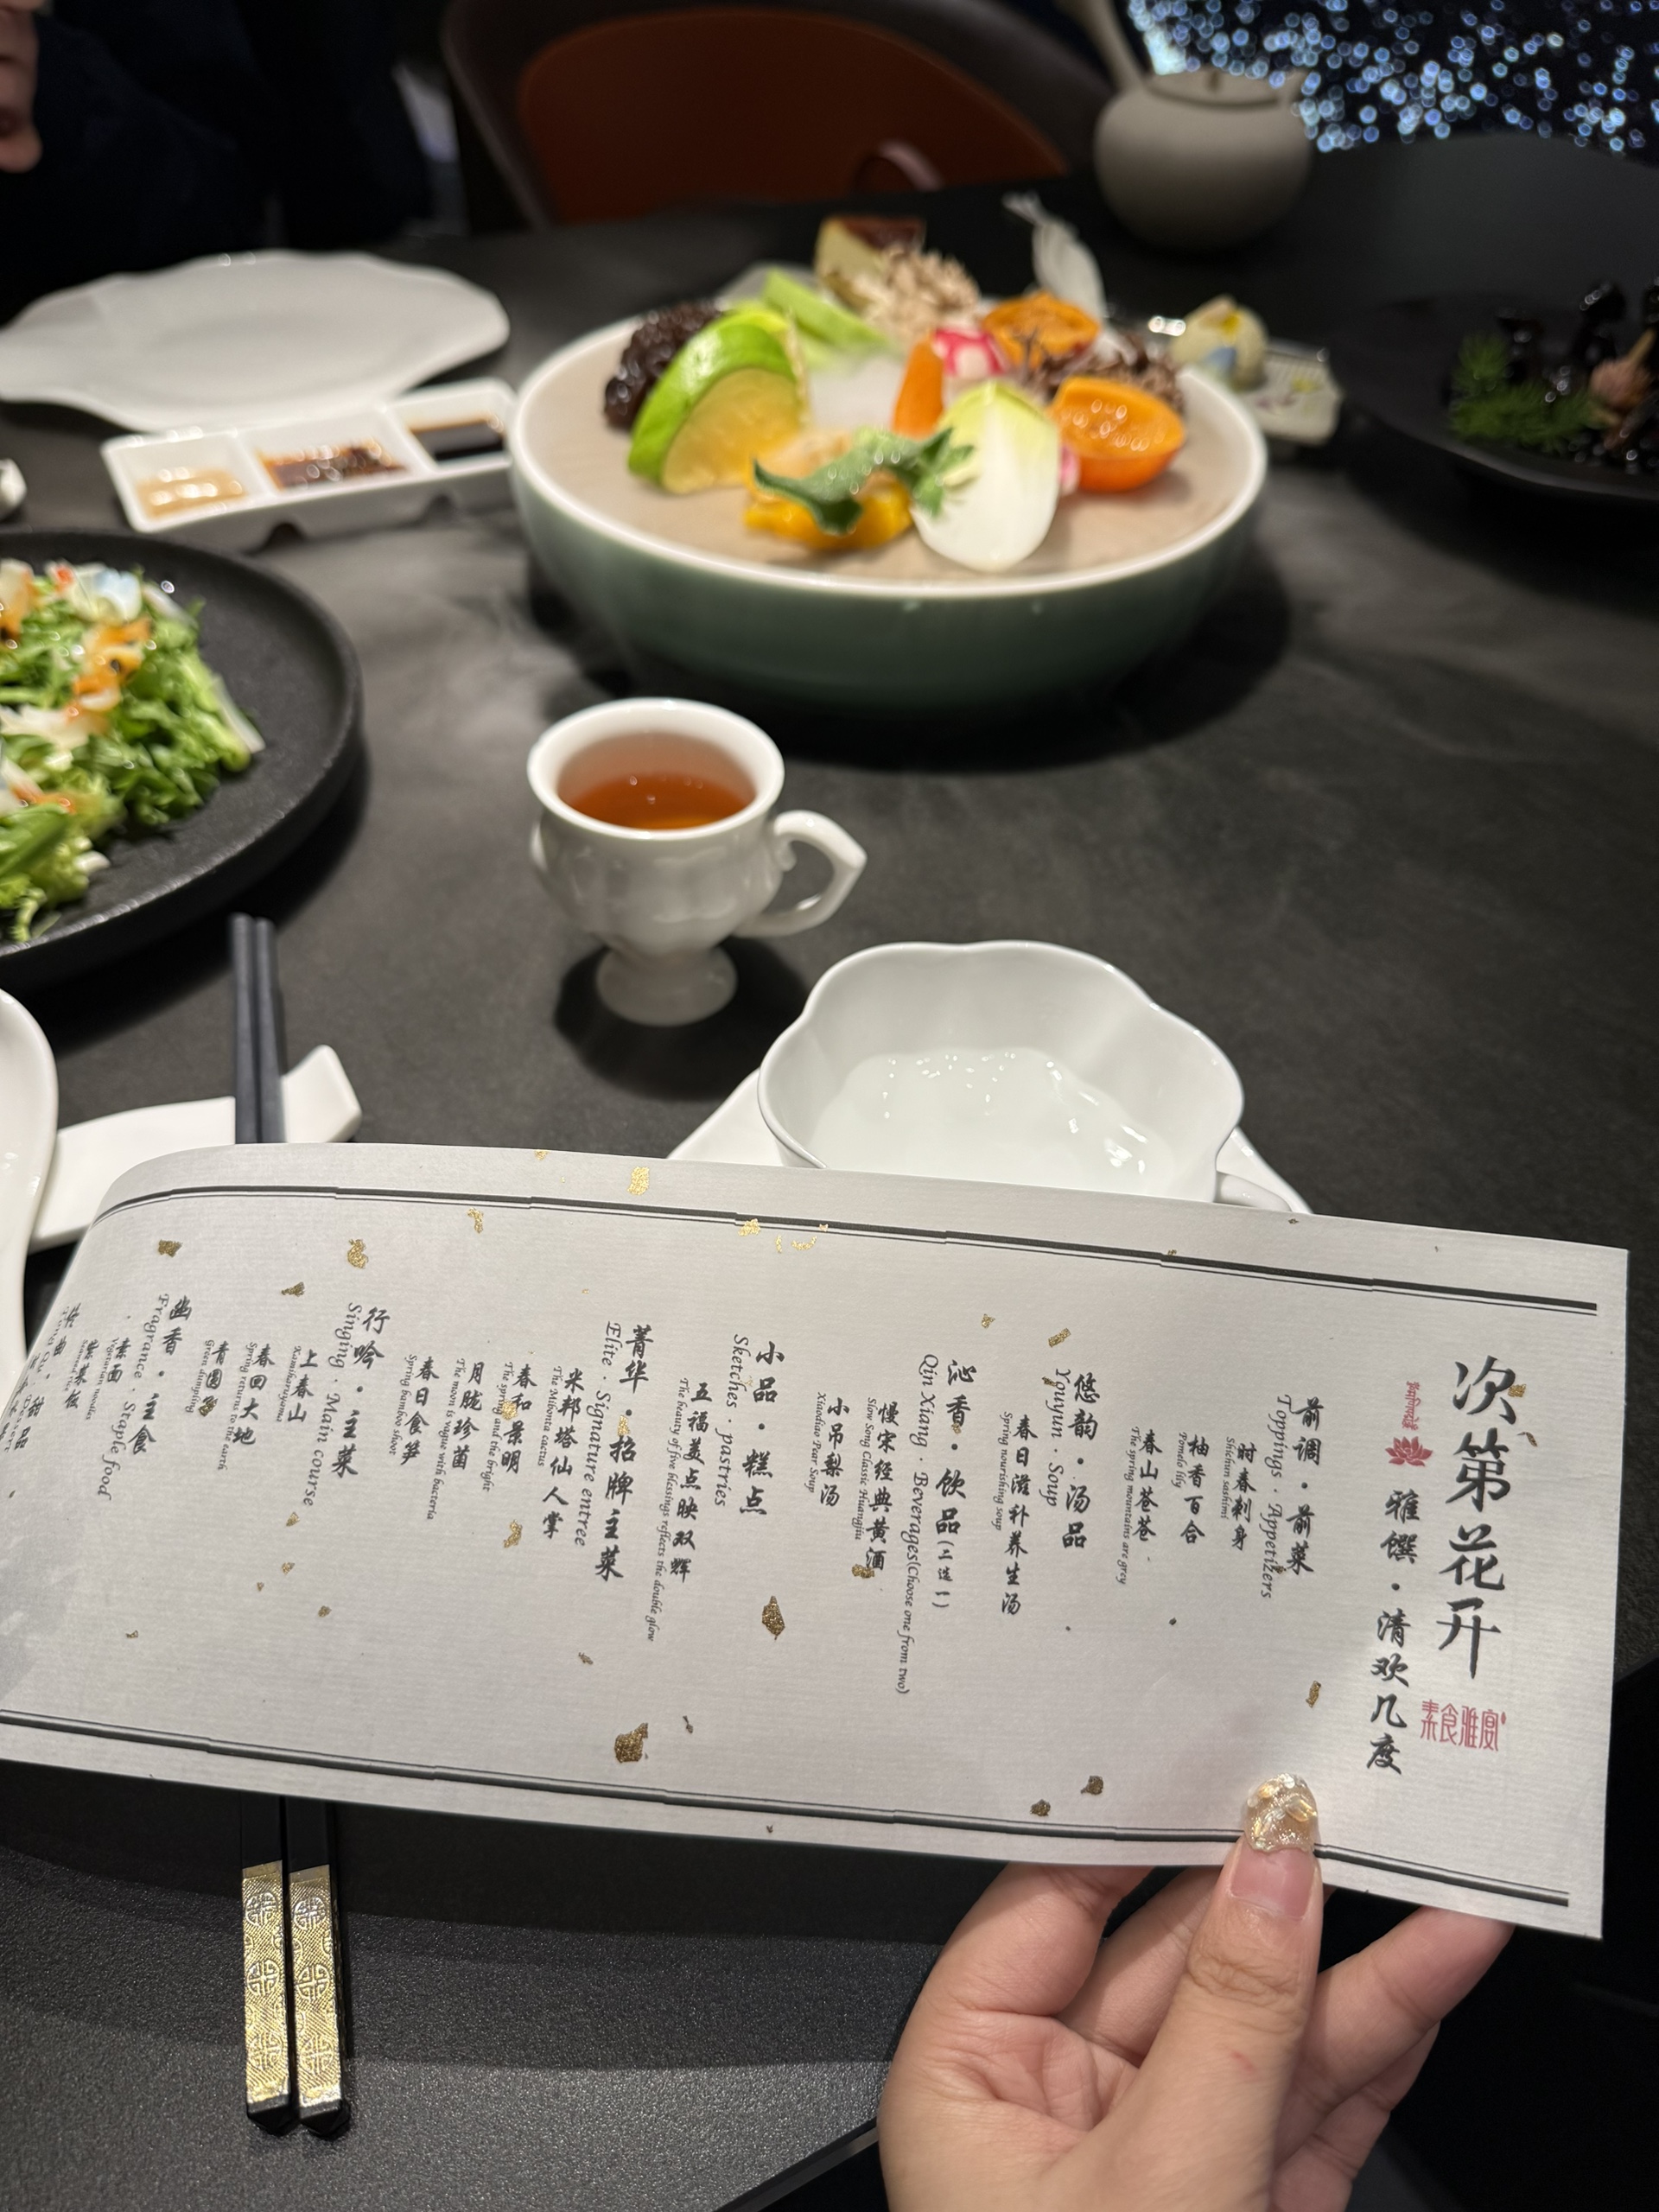 次第花开
素食雅宴
雅馔·清欢几度
前调·前菜
Toppings · Appetizers
时春刺身
Shichun sashimi
柚香百合
Pomelo lily
春山苍苍
The spring mountains are grey
悠韵·汤品
Youyun · Soup
春日滋补养生汤
Spring nourishing soup
沁香·饮品(二选一)
Qin Xiang · Beverages(Choose one from two)
慢宋经典黄酒
Slow Song Classic Huangjiu
小吊梨汤
Xiaodiao Pear Soup
小品·糕点
Sketches · pastries
五福美点映双辉
The beauty of five blessings reflects the double glow
菁华·招牌主菜
Elite · Signature entree
米邦塔仙人掌
The Mibonta cactus
春和景明
The spring and the bright
月胧珍菌
The moon is vague with bacteria
春日食笋
Spring bamboo shoot
行吟·主菜
Singing · Main course
上春山
春回大地
Spring returns to the earth
青团
green dumpling
幽香·主食
Fragrance · Staple food
素面
Vegetarian noodles